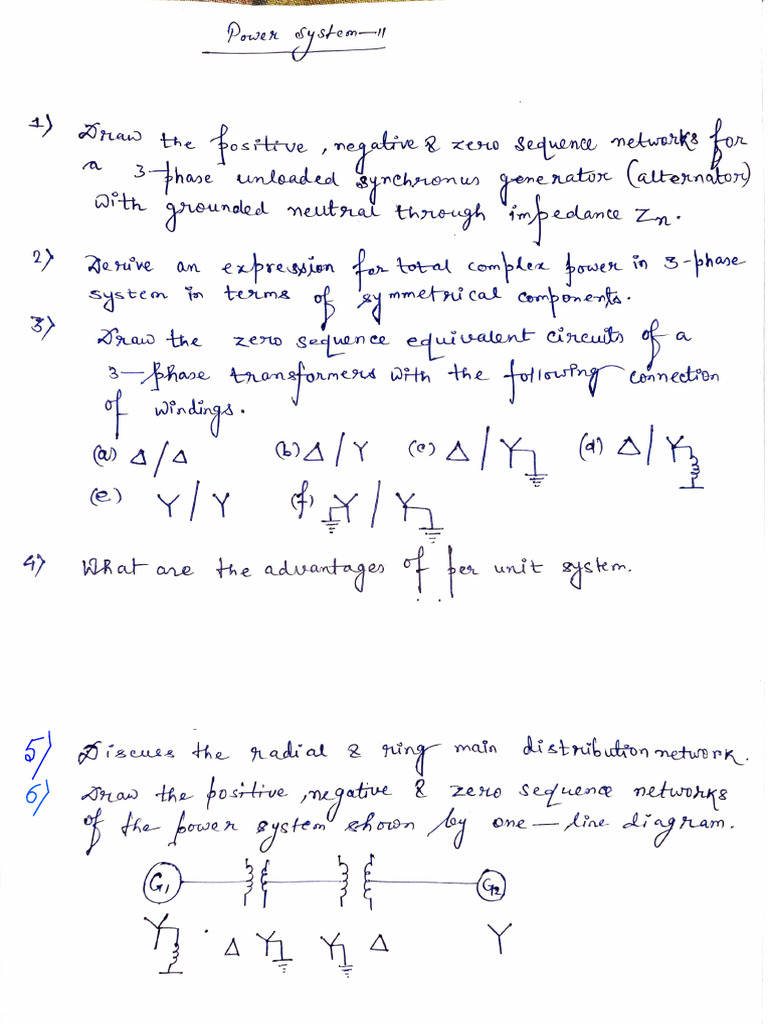 Power System-II
1) Draw the positive, negative & zero sequence networks for
a 3-phase unloaded synchronus generator (alternator)
with grounded neutral through impedance Zn.
2) Derive an expression for total complex power in 3-phase
system in terms of symmetrical components.
3) Draw the zero sequence equivalent circuits of a
3-phase transformers with the following connection
of windings.
(a) Δ/Δ (b) Δ/Y (c) Δ/Y (d) Δ/Y
(e) Y/Y (f) Y/Y
4) What are the advantages of per unit system.
5) Discuss the radial & ring main distribution network.
6) Draw the positive, negative & zero sequence networks
of the power system shown by one-line diagram.
G1 G2
Y Δ Y Y Δ Y